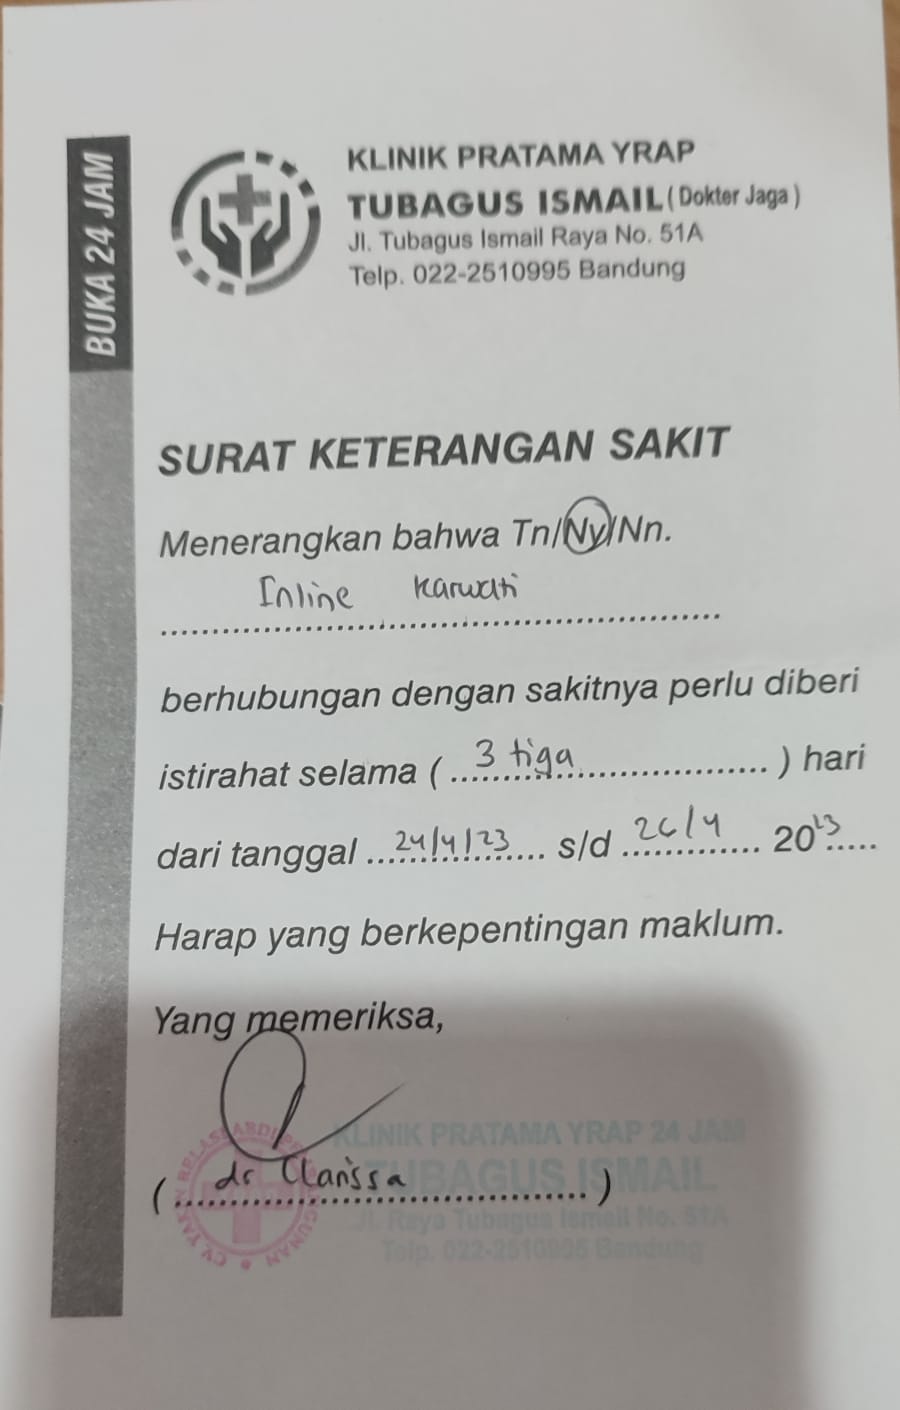 BUKA 24 JAM
KLINIK PRATAMA YRAP
TUBAGUS ISMAIL ( Dokter Jaga )
Jl. Tubagus Ismail Raya No. 51A
Telp. 022-2510995 Bandung
SURAT KETERANGAN SAKIT
Menerangkan bahwa Tn/Ny/Nn.
Inline Karwati
berhubungan dengan sakitnya perlu diberi
istirahat selama ( 3 tiga ) hari
dari tanggal 24/4/23 s/d 26/4 2023
Harap yang berkepentingan maklum.
Yang memeriksa,
KLINIK PRATAMA YRAP 24 JAM
TUBAGUS ISMAIL
Jl. Raya Tubagus Ismail No. 51A
Telp. 022-2510995 Bandung
( dr Clarissa )